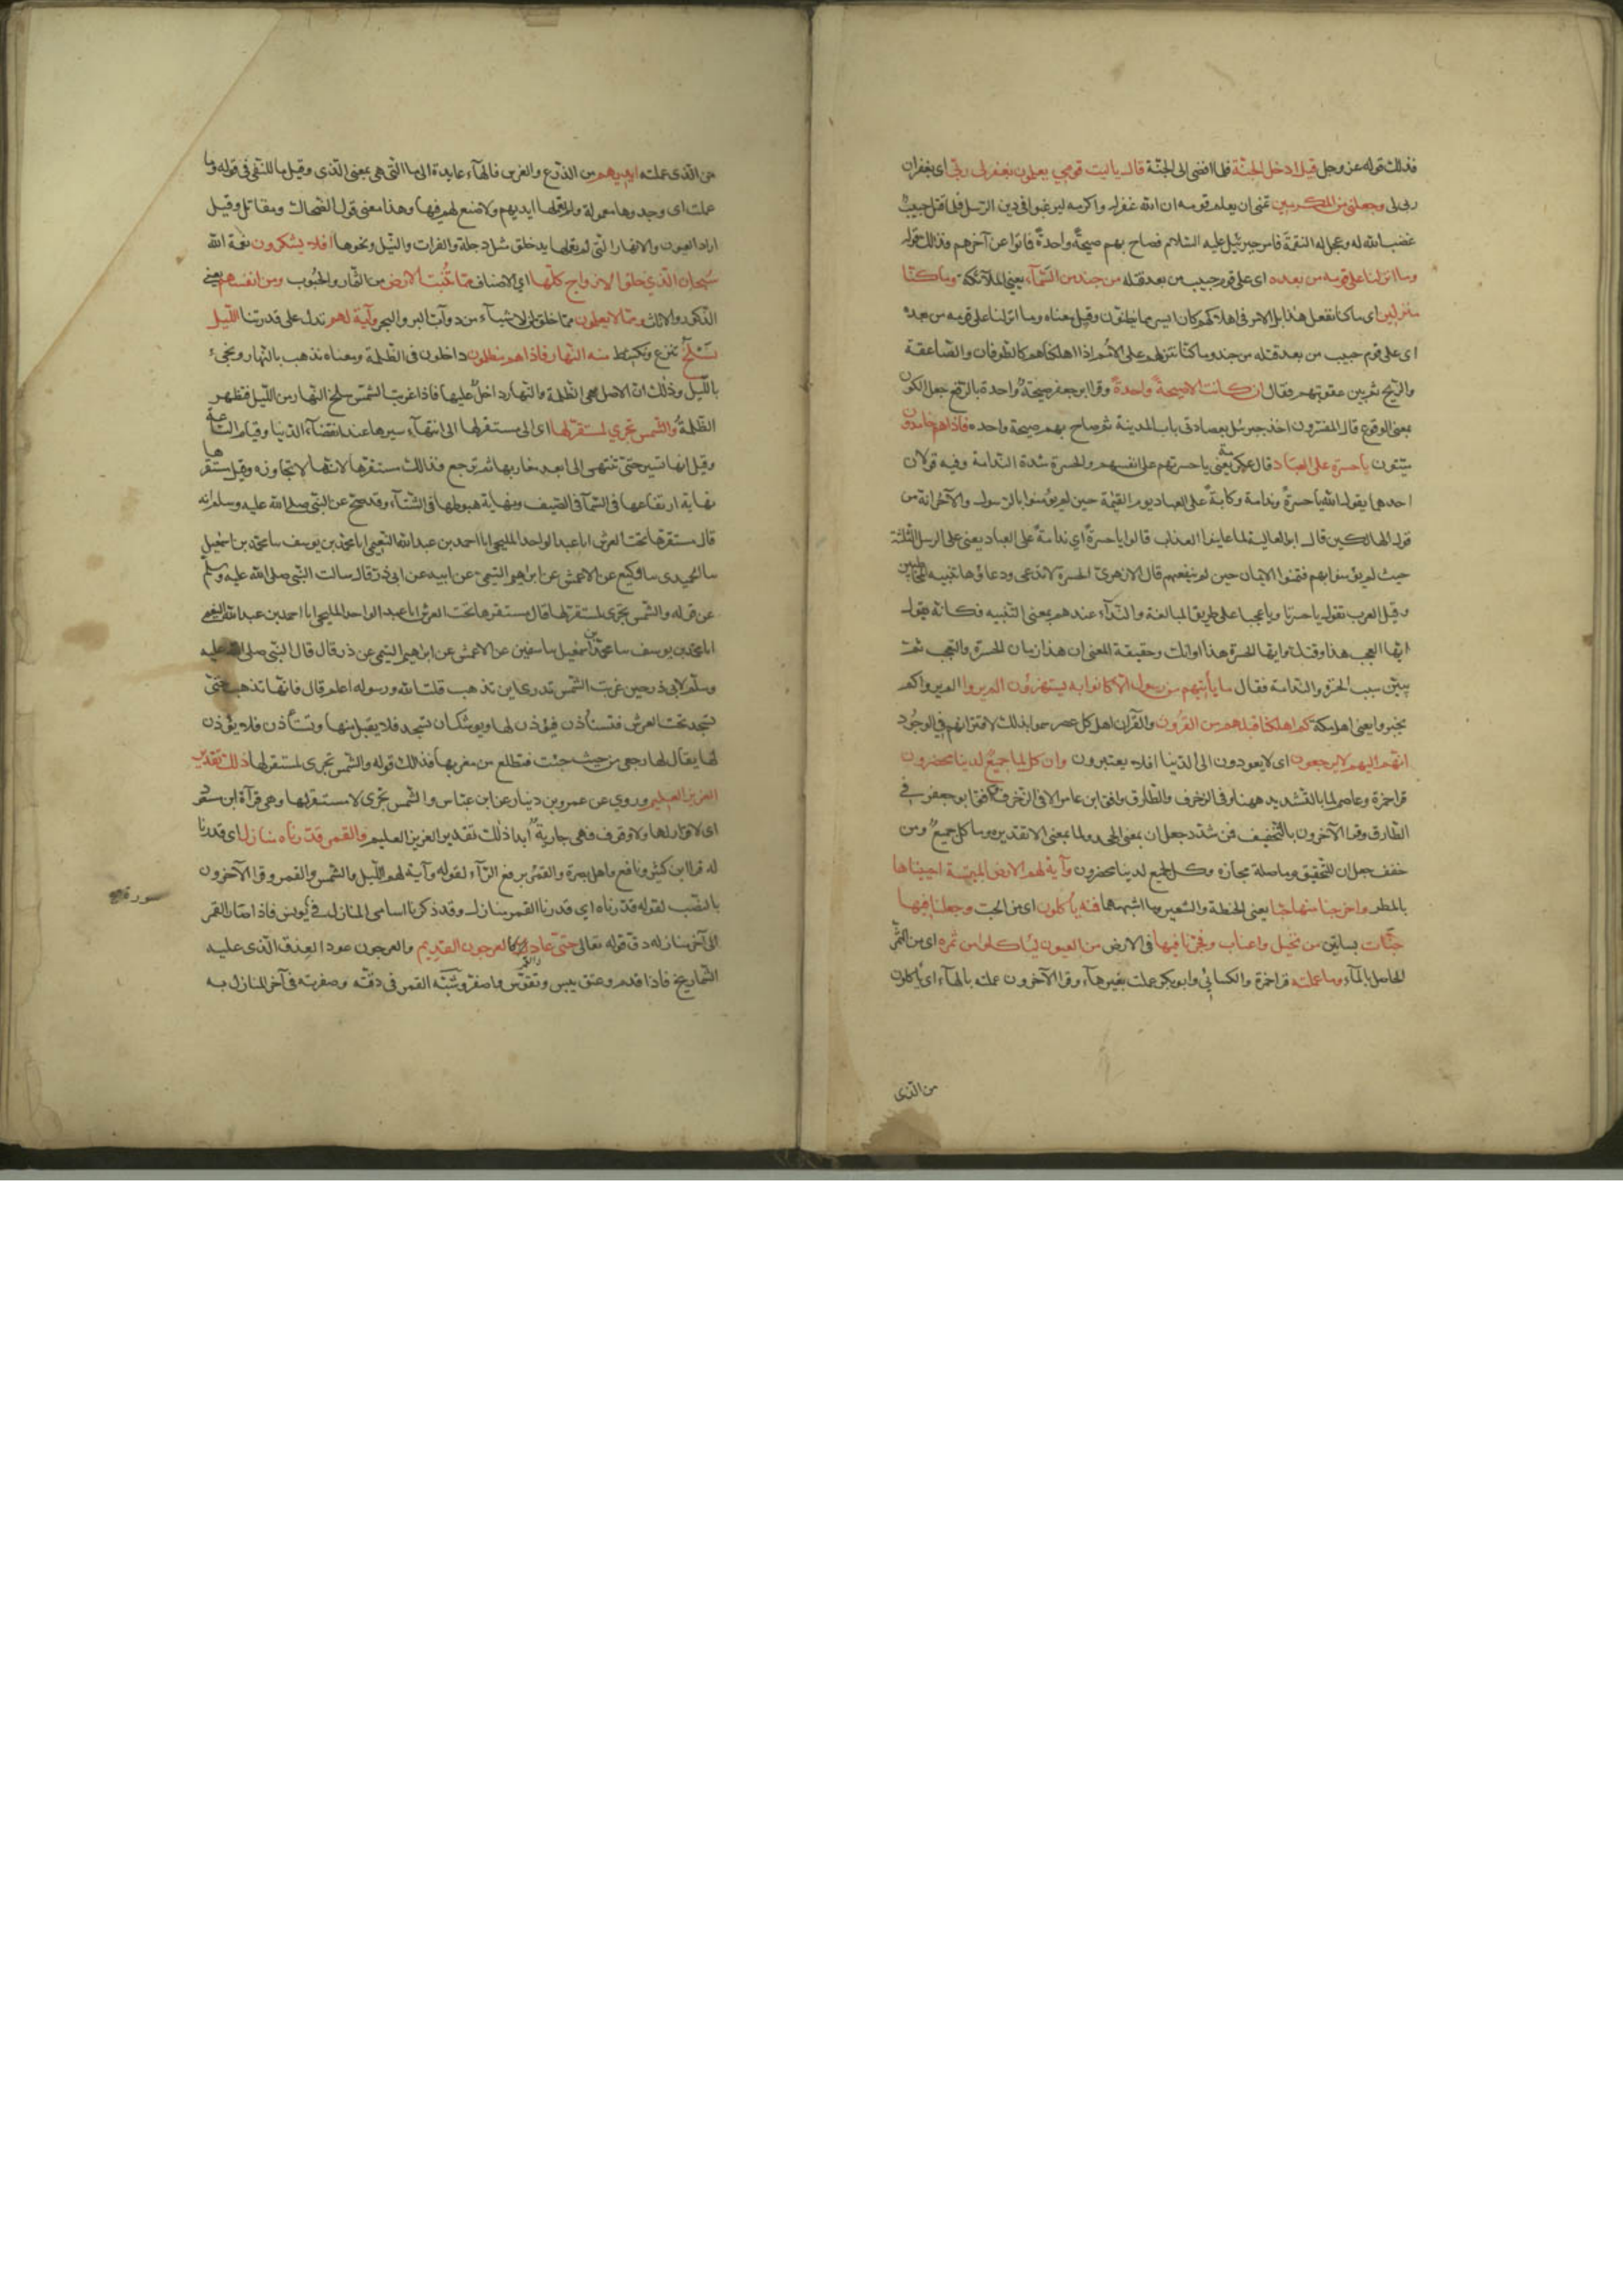 فذلك قوله عز وجل قيل ادخل الجنة فلما افضى الى الجنة قال يا ليت قومي يعلمون بما غفر لى ربى اى بغفران
ربى لى وجعلنى من المكرمين تمنى ان يعلم قومه ان الله غفر له واكرمه ليرغبوا فى دين الرسل فلما قتل حبيب
غضب الله له وعجل له النقمة فامر جبرئيل عليه السلام فصاح بهم صيحة واحدة فماتوا عن آخرهم فذلك قوله
وما انزلنا على قومه من بعده اى على قوم حبيب من بعد قتله من جند من السماء يعنى الملائكة وما كنا
منزلين اى ما كنا نفعل هذا بل الامر فى اهلاكهم كان ايسر مما يظنون وقيل معناه وما انزلنا على قومه من بعده
اى على قوم حبيب من بعد قتله من جند وما كنا ننزلهم على الامم اذا اهلكناهم كالطوفان والصاعقة
والريح ثم بين عقوبتهم فقال ان كانت الا صيحة واحدة وقرا ابو جعفر صيحة واحدة بالرفع جعل الكون
بمعنى الوقوع قال المفسرون اخذ جبرئيل بعضادتى باب المدينة ثم صاح بهم صيحة واحدة فاذا هم خامدون
ميتون يا حسرة على العباد قال عكرمة يعنى يا حسرتهم على انفسهم والحسرة شدة الندامة وفيه قولان
احدهما يقول الله يا حسرة وندامة وكآبة على العباد يوم القيمة حين لم يؤمنوا بالرسول والآخر انه من
قول الهالكين قال ابو العالية لما عاينوا العذاب قالوا يا حسرة اى ندامة على العباد يعنى على الرسل الثلثة
حيث لم يؤمنوا بهم فتمنوا الايمان حين لم ينفعهم قال الازهرى الحسرة لا تدعى ودعاؤها تنبيه المخاطبين
وقيل العرب تقول يا حسرتا ويا عجبا على طريق المبالغة والنداء عندهم بمعنى التنبيه فكانه يقول
ايها العجب هذا وقتك وايها الحسرة هذا اوانك وحقيقة المعنى ان هذا زمان الحسرة والتعجب ثم
يبين سبب الحسرة والندامة فقال ما يأتيهم من رسول الا كانوا به يستهزؤن الم يروا الم يروا كم
يخبروا يعنى اهل مكة كم اهلكنا قبلهم من القرون والقرآن اهل كل عصر سموا بذلك لاقترانهم فى الوجود
انهم اليهم لا يرجعون اى لا يعودون الى الدنيا افلا يعتبرون وان كل لما جميع لدينا محضرون
قرا حمزة وعاصم لما بالتشديد ههنا وفى الزخرف والطارق وافق ابن عامر الا فى الزخرف وافق ابو جعفر فى
الطارق وقرا الآخرون بالتخفيف فمن شدد جعل ان بمعنى الجحد ولما بمعنى الا تقديره وما كل جميع ومن
خفف جعل ان للتحقيق وما صلة مجازه وكل لجميع لدينا محضرون وآية لهم الارض الميتة احييناها
بالمطر واخرجنا منها حبا يعنى الحنطة والشعير وما اشبههما فمنه يأكلون اى من الحب وجعلنا فيها
جنات بساتين من نخيل واعناب وفجرنا فيها فى الارض من العيون ليأكلوا من ثمره اى من الثمر
الحاصل بالماء وما عملته قرا حمزة والكسائى وابو بكر عملت بغير هاء وقرا الآخرون عملته بالهاء اى يأكلون
من الذى
من الذى عملته ايديهم من الذرع والغرس فالهاء عايدة الى ما التى هى بمعنى الذى وقيل ما للنفى فى قوله وما
عملت اى وجدوها معمولة ولم يعملها ايديهم ولا صنع لهم فيها وهذا معنى قول الضحاك ومقاتل وقيل
اراد العيون والانهار التى لم يعملها يد خلق مثل دجلة والفرات والنيل ونحوها افلا يشكرون نعمة الله
سبحان الذى خلق الازواج كلها اى الاصناف مما تنبت الارض من الثمار والحبوب ومن انفسهم يعنى
الذكور والاناث ومما لا يعلمون مما خلق من الاشياء من دواب البر والبحر وآية لهم تدل على قدرتنا الليل
نسلخ ننزع ونكشط منه النهار فاذا هم مظلمون داخلون فى الظلمة ومعناه نذهب بالنهار ونجىء
بالليل وذلك ان الاصل هى الظلمة والنهار داخل عليها فاذا غربت الشمس سلخ النهار من الليل فتظهر
الظلمة والشمس تجرى لمستقر لها اى الى مستقر لها الى انتهاء سيرها عند انقضاء الدنيا وقيام الساعة
وقيل انها تسير حتى تنتهى الى ابعد مغاربها ثم ترجع فذلك مستقرها لانها لا تجاوزه وقيل مستقرها
نهاية ارتفاعها فى السماء فى الصيف ونهاية هبوطها فى الشتاء وقد صح عن النبى صلى الله عليه وسلم انه
قال مستقرها تحت العرش انا عبد الواحد المليحى انا احمد بن عبد الله النعيمى انا محمد بن يوسف سا محمد بن اسمعيل
سا الحميدى سا وكيع عن الاعمش عن ابراهيم التيمى عن ابيه عن ابى ذر قال سالت النبى صلى الله عليه وسلم
عن قوله والشمس تجرى لمستقر لها قال مستقرها تحت العرش انا عبد الواحد المليحى انا احمد بن عبد الله النعيمى
انا محمد بن يوسف سا محمد بن اسمعيل سا سفين عن الاعمش عن ابراهيم التيمى عن ذر قال قال النبى صلى الله عليه
وسلم لابى ذر حين غربت الشمس تدرى اين تذهب قلت الله ورسوله اعلم قال فانها تذهب حتى
تسجد تحت العرش فتستأذن فيؤذن لها ويوشك ان تسجد فلا يقبل منها وتستأذن فلا يؤذن
لها يقال لها ارجعى من حيث جئت فتطلع من مغربها فذلك قوله والشمس تجرى لمستقر لها ذلك تقدير
العزيز العليم وروى عن عمرو بن دينار عن ابن عباس والشمس تجرى لا مستقر لها وهى قرآة ابن مسعود
اى لا قرار لها ولا وقوف فهى جارية ابدا ذلك تقدير العزيز العليم والقمر قدرناه منازل اى قدرنا
له قرا ابن كثير ونافع واهل بصرة والقمر برفع الراء لقوله وآية لهم الليل والشمس والقمر وقرا الآخرون
بالنصب لقوله قدرناه اى قدرنا القمر منازل وقد ذكرنا اسامى المنازل فى يونس فاذا صار القمر
سورة
الى آخر منازله دق قوله تعالى حتى عاد كالعرجون القديم والعرجون عود العذق الذى عليه
الشماريخ فاذا قدم وعتق يبس وتقوس واصفر وشبه القمر فى دقته وصفرته فى آخر المنازل به